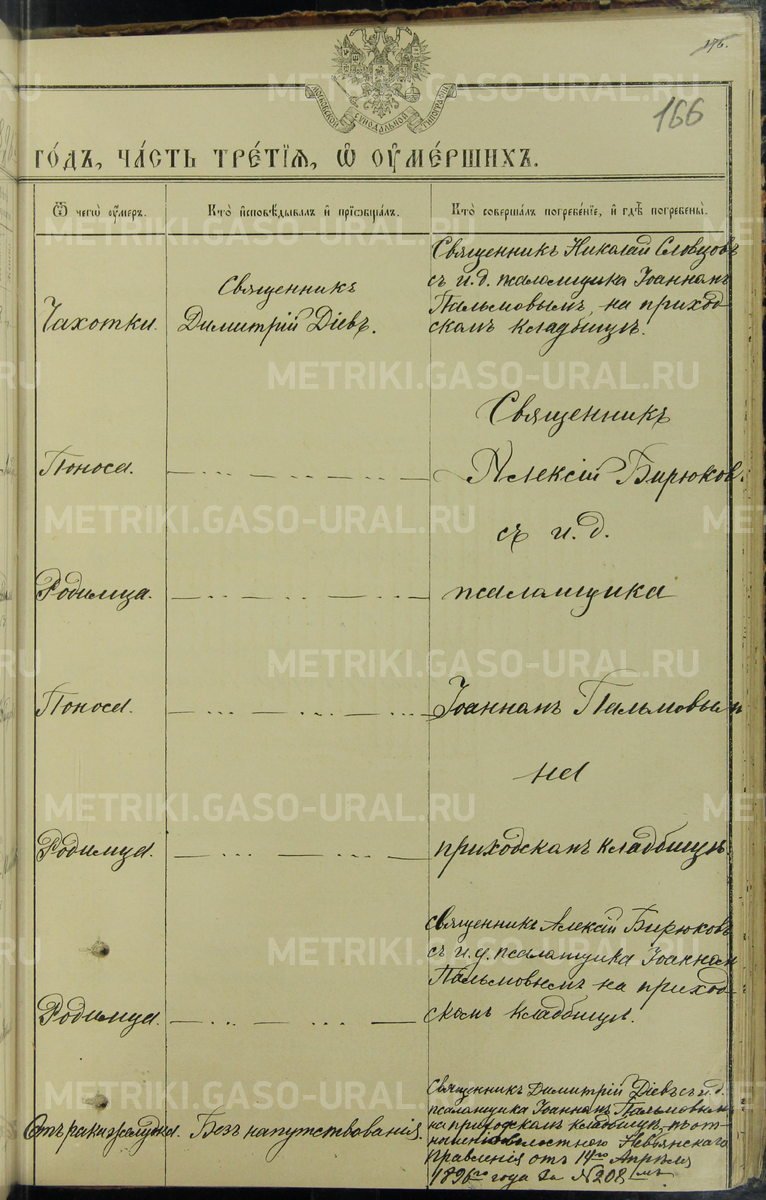 276.
166
МОСКОВСКОЙ СѴНОДАЛЬНОЙ ТИПОГРАФІИ
го́дъ, ча́сть тре́тїѧ, ѡ҆ оу҆ме́ршихъ.
Ѿ чегѡ̀ оу҆́меръ.
Кто̀ и҆сповѣ́дывалъ и҆ прїѡбща́лъ.
Кто̀ соверша́лъ погребе́нїе, и҆ гдѣ̀ погребены̀.
Чахотки.
Священникъ
Димитрій Діевъ.
Священникъ Николай Словцовъ
съ и.д. псаломщика Іоанномъ
Пальмовымъ, на приход-
скомъ кладбищѣ.
Поноса.
Священникъ
Алексій Бирюковъ
съ и. д.
Родимца.
псаломщика
Поноса.
Іоанномъ Пальмовымъ
на
Родимца.
приходскомъ кладбищѣ.
Родимца.
Священникъ Алексій Бирюковъ
съ и.д. псаломщика Іоанномъ
Пальмовымъ на приход-
скомъ кладбищѣ.
Отъ рака желудка.
Безъ напутствованія.
Священникъ Димитрій Діевъ съ и.д.
псаломщика Іоанномъ Пальмовымъ
на приходскомъ кладбищѣ, по от-
ношенію волостного Невьянскаго
Правленія отъ 14го Апрѣля
1896го года за №208мъ.
METRIKI.GASO-URAL.RU